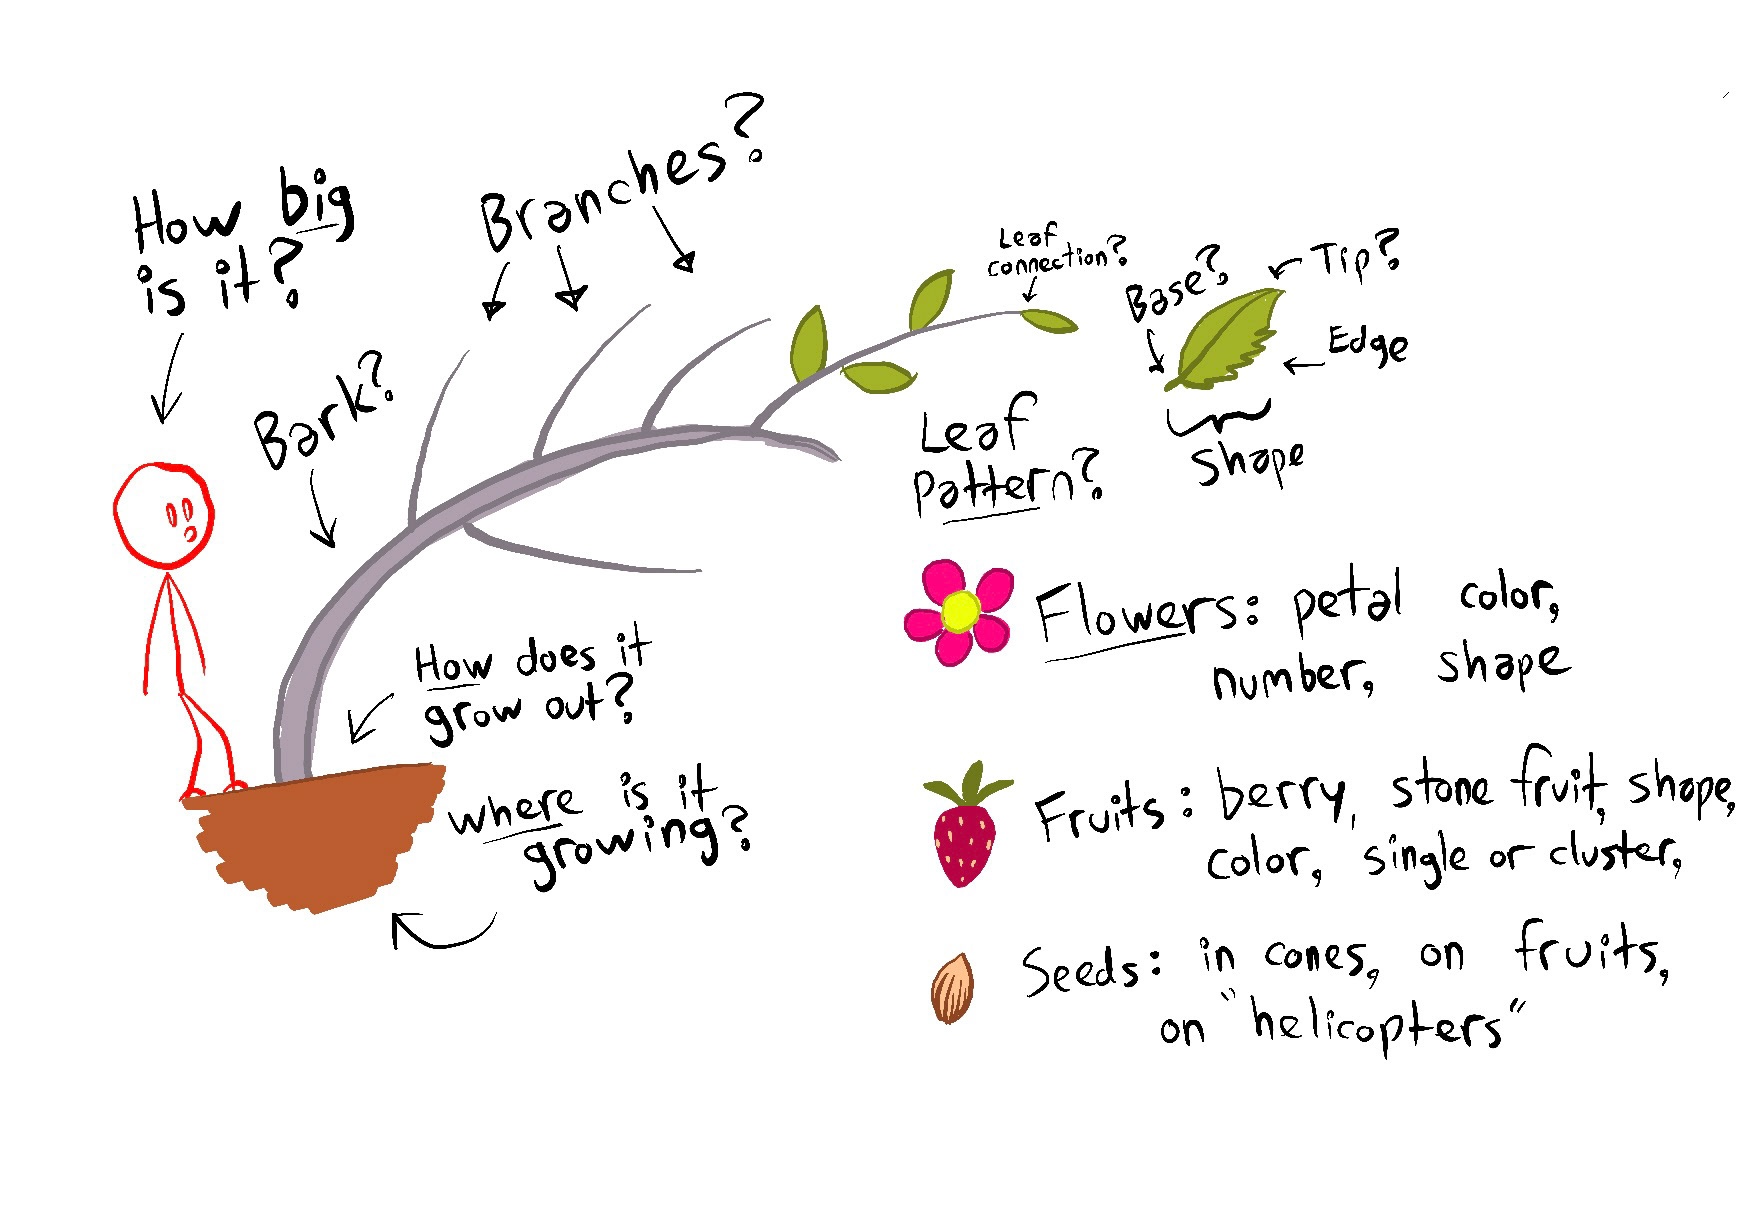 How big
is it?
Branches?
Bark?
Leaf
connection?
Base?
Tip?
Edge
Shape
Leaf
pattern?
How does it
grow out?
Where is it
growing?
Flowers: petal color,
number, shape
Fruits: berry, stone fruit, shape,
color, single or cluster,
Seeds: in cones, on fruits,
on "helicopters"